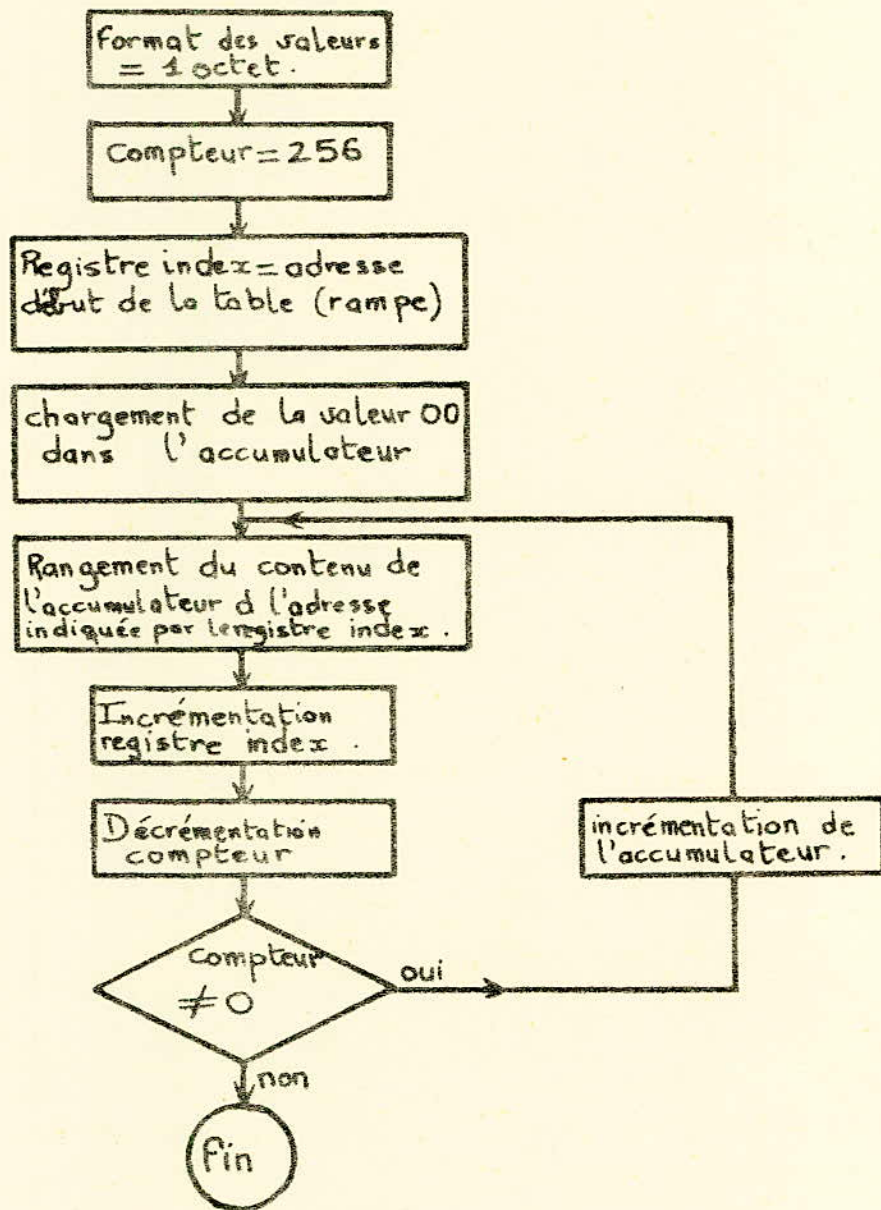 format des valeurs
= 1 octet.
Compteur = 256
Registre index = adresse
début de la table (rampe)
chargement de la valeur 00
dans l'accumulateur
Rangement du contenu de
l'accumulateur à l'adresse
indiquée par le registre index.
Incrémentation
registre index.
Décrémentation
compteur
incrémentation de
l'accumulateur.
Compteur
≠ 0
oui
non
fin